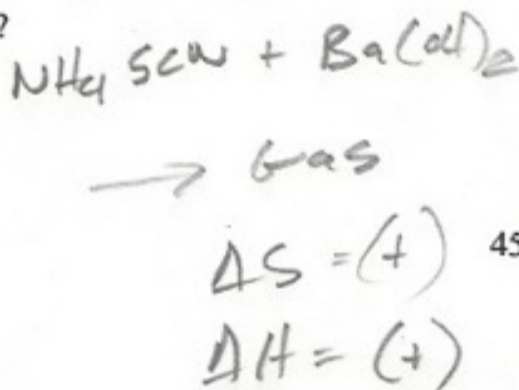 ?
NH4 SCN + Ba(OH)2
→ Gas
ΔS = (+)
45
ΔH = (+)